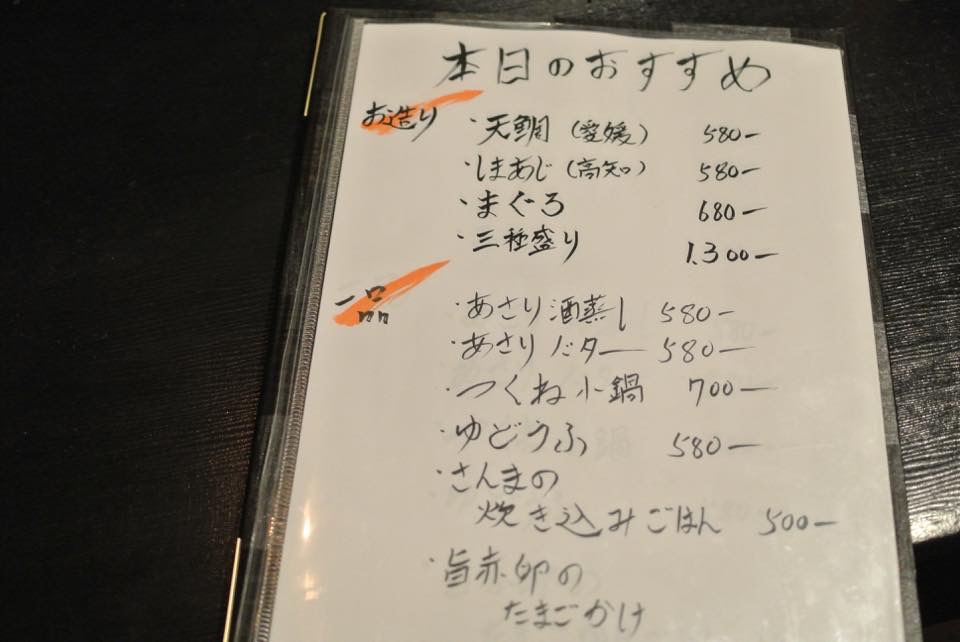 本日のおすすめ
お造り
・天鯛（愛媛） 580ー
・しまあじ（高知） 580ー
・まぐろ 680ー
・三種盛り 1,300ー
一品
・あさり酒蒸し 580ー
・あさりバター 580ー
・つくね小鍋 700ー
・ゆどうふ 580ー
・さんまの
炊き込みごはん 500ー
・旨赤卵の
たまごかけ